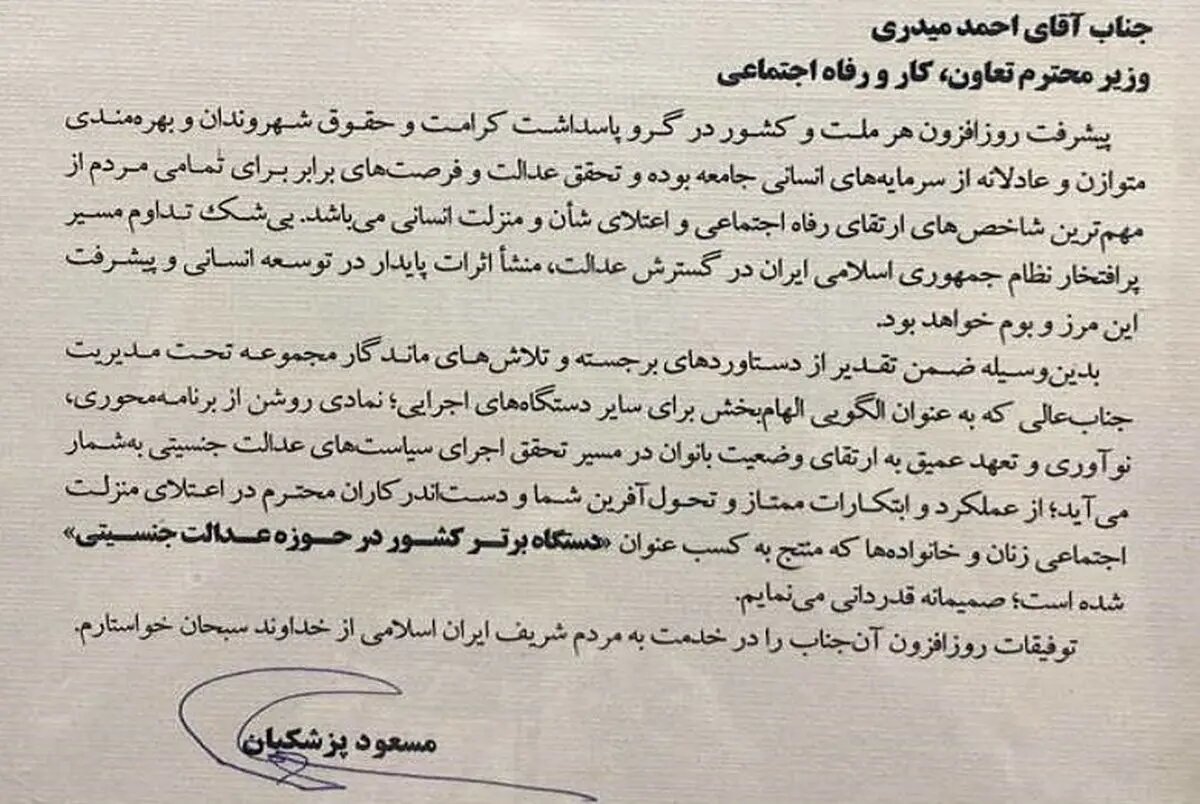 جناب آقای احمد میدری
وزیر محترم تعاون، کار و رفاه اجتماعی
پیشرفت روزافزون هر ملت و کشور در گرو پاسداشت کرامت و حقوق شهروندان و بهره‌مندی
متوازن و عادلانه از سرمایه‌های انسانی جامعه بوده و تحقق عدالت و فرصت‌های برابر برای تمامی مردم از
مهم‌ترین شاخص‌های ارتقای رفاه اجتماعی و اعتلای شأن و منزلت انسانی می‌باشد. بی‌شک تداوم مسیر
پرافتخار نظام جمهوری اسلامی ایران در گسترش عدالت، منشأ اثرات پایدار در توسعه انسانی و پیشرفت
این مرز و بوم خواهد بود.
بدین‌وسیله ضمن تقدیر از دستاوردهای برجسته و تلاش‌های ماندگار مجموعه تحت مدیریت
جناب‌عالی که به عنوان الگویی الهام‌بخش برای سایر دستگاه‌های اجرایی؛ نمادی روشن از برنامه‌محوری،
نوآوری و تعهد عمیق به ارتقای وضعیت بانوان در مسیر تحقق اجرای سیاست‌های عدالت جنسیتی به‌شمار
می‌آید؛ از عملکرد و ابتکارات ممتاز و تحول‌آفرین شما و دست‌اندرکاران محترم در اعتلای منزلت
اجتماعی زنان و خانواده‌ها که منتج به کسب عنوان «دستگاه برتر کشور در حوزه عدالت جنسیتی»
شده است؛ صمیمانه قدردانی می‌نمایم.
توفیقات روزافزون آن‌جناب را در خدمت به مردم شریف ایران اسلامی از خداوند سبحان خواستارم.
مسعود پزشکیان